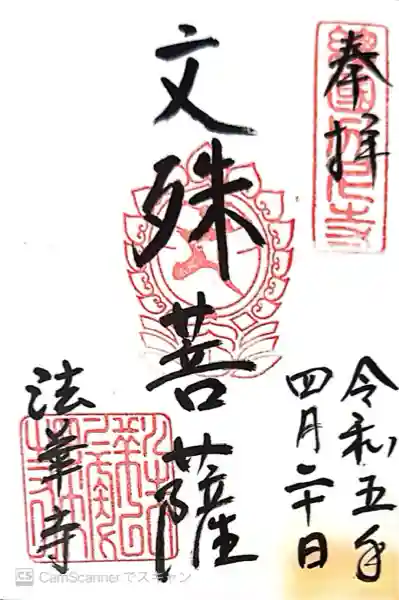 奉拝
令和五年
四月二十日
文殊菩薩
法華寺
CS CamScannerでスキャン